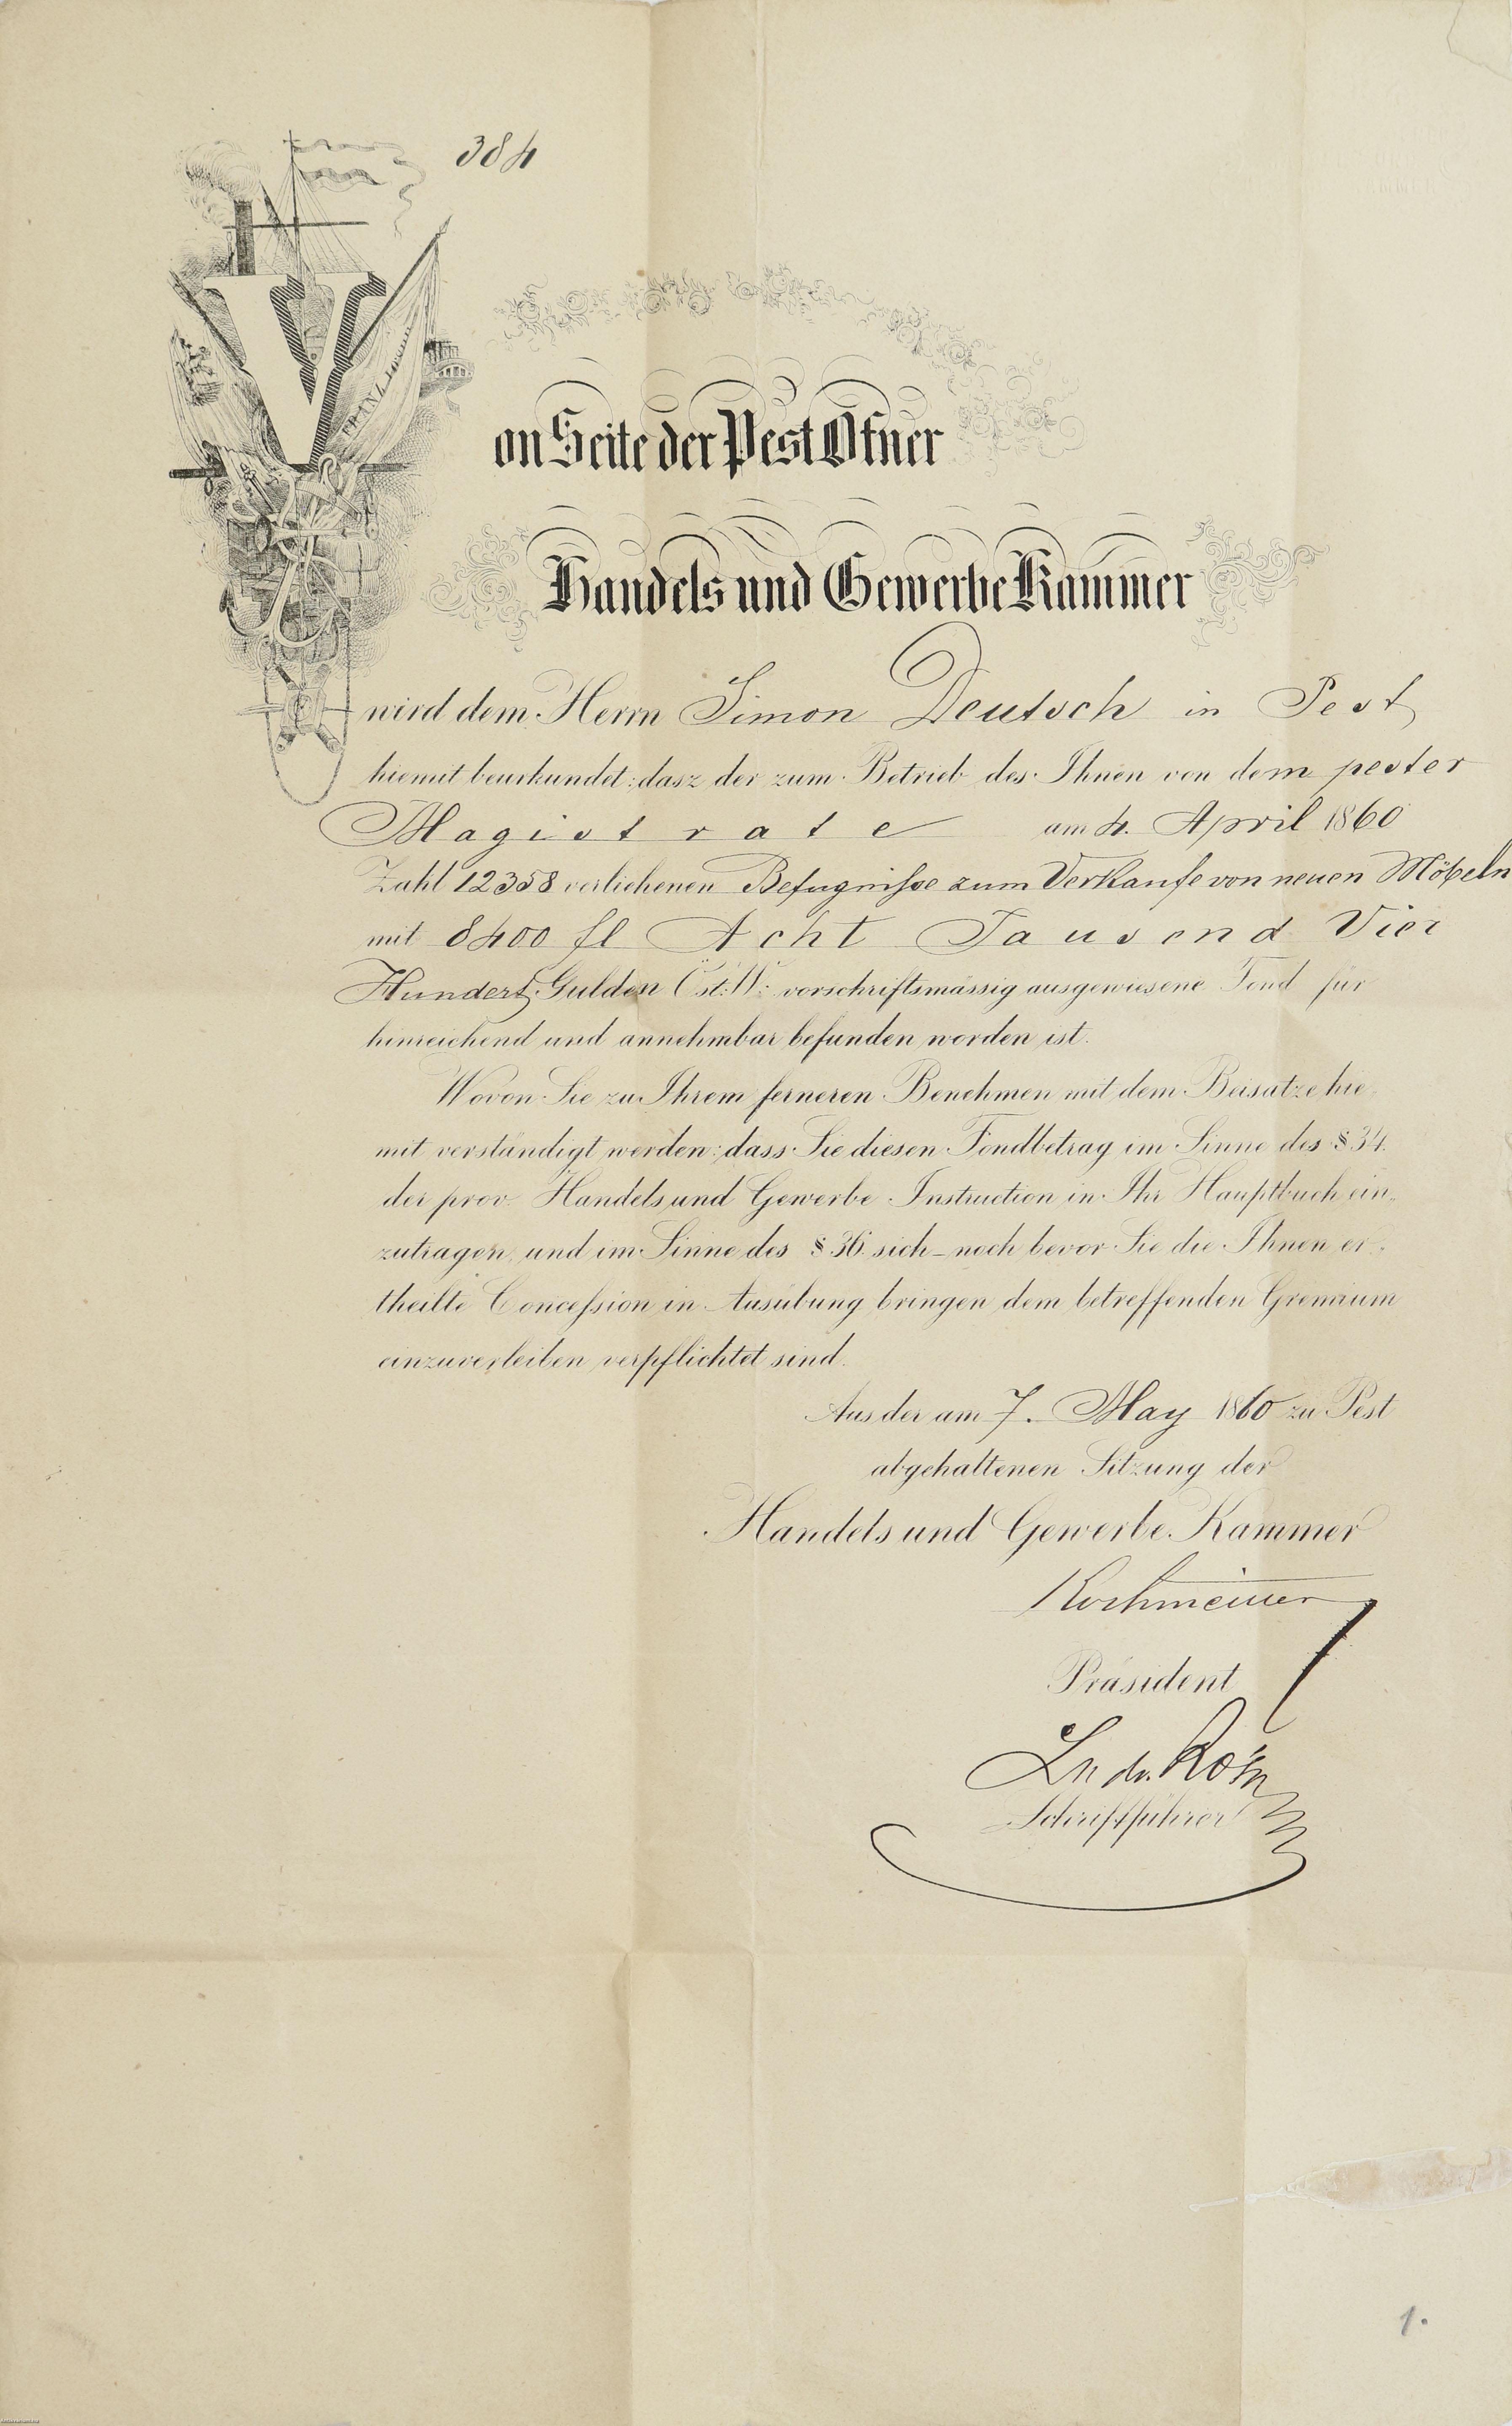 384
Von Seite der Pest Ofner
FRANZ JOSEF
Handels und Gewerbe Kammer
wird dem Herrn Simon Deutsch in Pest
hiemit beurkundet: dasz der zum Betrieb des Ihnen von dem pester
Magistrate am 4. April 1860
Zahl 12358 verliehenen Befugnisse zum Verkaufe von neuen Möbeln
mit 8400 fl Acht Tausend Vier
Hundert Gulden Öst: W: vorschriftsmässig ausgewiesene Fond für
hinreichend und annehmbar befunden worden ist.
Wovon Sie zu Ihrem ferneren Benehmen mit dem Beisatze hie-
mit verständigt werden: dass Sie diesen Fondbetrag im Sinne des § 34.
der prov. Handels und Gewerbe Instruction in Ihr Hauptbuch ein-
zutragen, und im Sinne des § 36. sich – noch bevor Sie die Ihnen er-
theilte Concession in Ausübung bringen dem betreffenden Gremium
einzuverleiben verpflichtet sind.
Aus der am 7. May 1860 zu Pest
abgehaltenen Sitzung der
Handels und Gewerbe Kammer
Kochmeister
Präsident
Schriftführer
1.